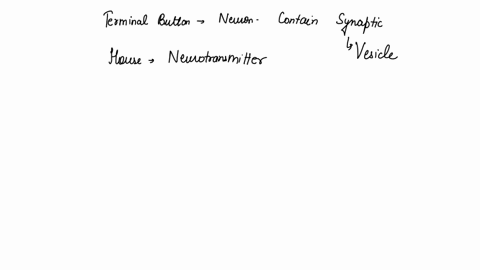 Terminal Button → Neuron. Contain Synaptic
↳ Vesicle
House → Neurotransmitter